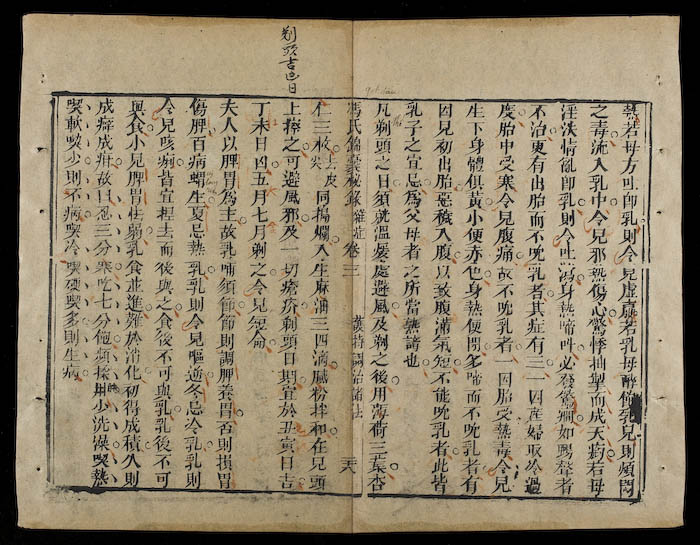 熱若母方吐卽乳則令兒虛羸若乳母醉後乳兒則煩悶
之毒流入乳中令兒邪熱傷心驚悸抽掣而成天瘹若母
淫泆情亂卽乳則令吐瀉身熱啼叫必發驚癇如鴉聲者
不治更有出胎而不吮乳者其症有三一因產婦取冷過
度胎中受寒令兒腹痛故不吮乳者一因胎受熱毒令兒
生下身體俱黃小便赤色身熱便閉多啼而不吮乳者有
因兒初出胎惡穢入腹以致腹滿氣短不能吮乳者此皆
乳子之宜忌為父母者之所當熟諳也
凡剃頭之日須就溫煖處避風及剃之後用薄荷三葉杏
馮氏錦囊秘錄 雜症 卷三 護持調治諸法 二六
仁三枚去皮尖同搗爛入生麻油三四滴膩粉拌和在兒頭
上擦之可避風邪及一切瘡疥剃頭日期宜於丑寅日吉
丁未日凶五月七月剃之令兒短命
夫人以脾胃為主故乳哺須節節則調脾養胃否則損胃
傷脾百病蝟生夏忌熱乳乳則令兒嘔逆冬忌冷乳乳則
令兒咳痢皆宜捏去而後與之食後不可與乳乳後不可
與食小兒脾胃怯弱乳食並進難於消化初得成積久則
成癖成疳故曰忍三分寒吃七分飽頻揉肚少洗澡喫熱
喫軟喫少則不病喫冷喫硬喫多則生病
剃頭吉凶日